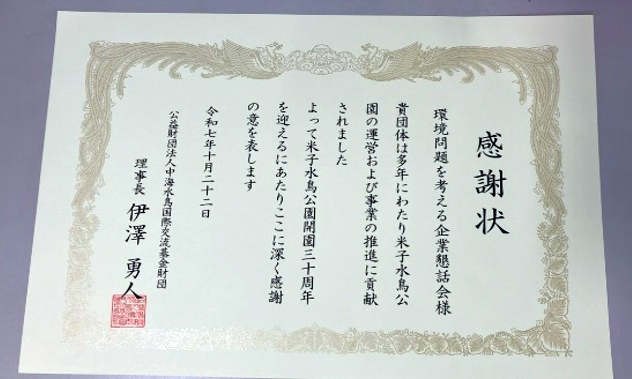 感謝状
環境問題を考える企業懇話会様
貴団体は多年にわたり米子水鳥公
園の運営および事業の推進に貢献
されました
よって米子水鳥公園開園三十周年
を迎えるにあたりここに深く感謝
の意を表します
令和七年十月二十二日
公益財団法人中海水鳥国際交流基金財団
理事長 伊澤勇人